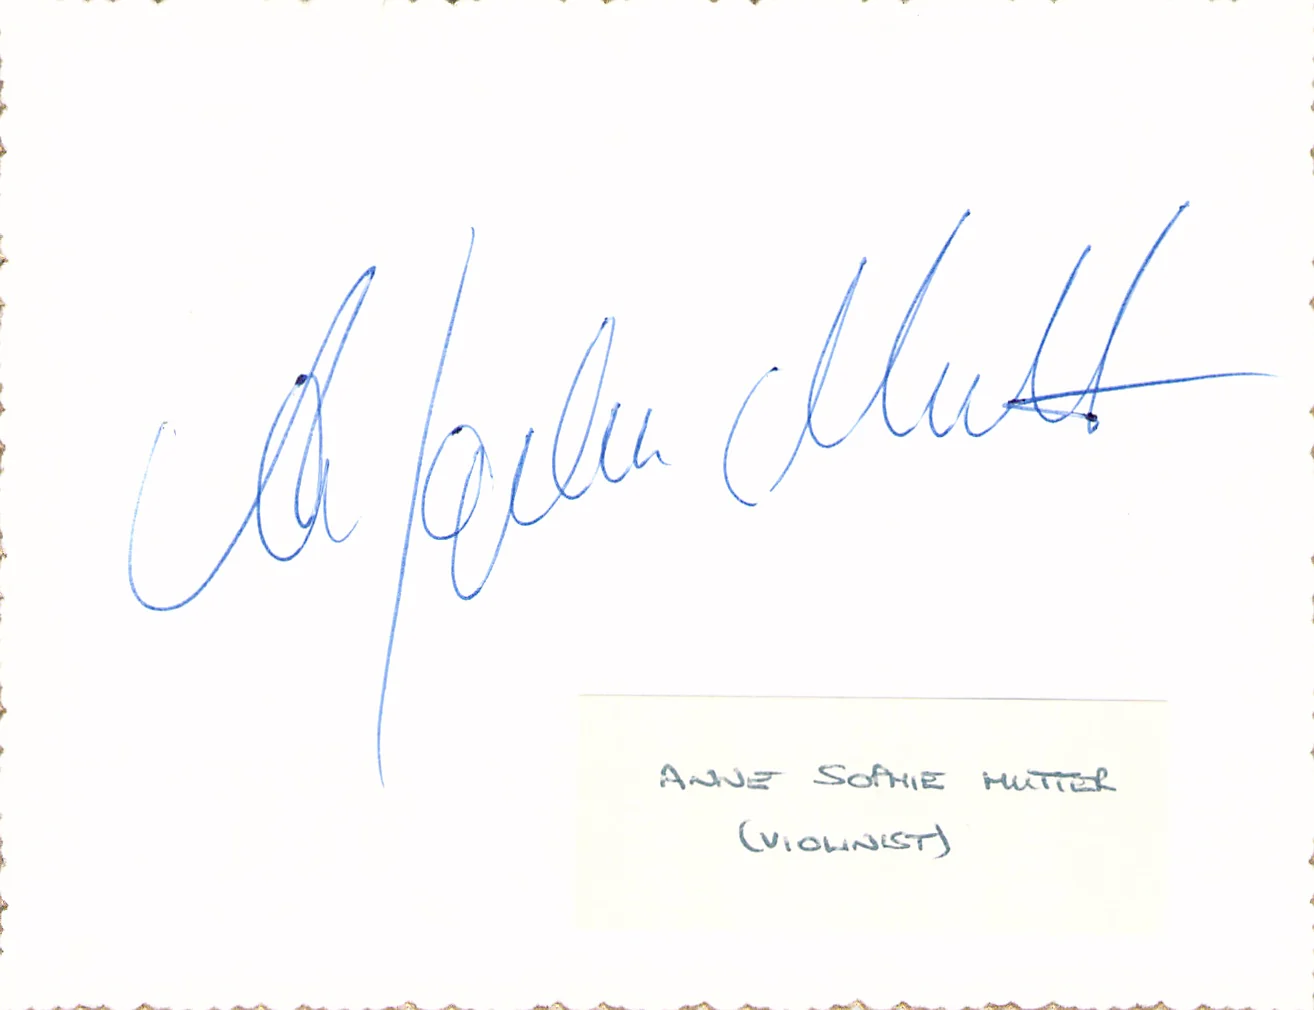 Anne Sophie Mutter
ANNE SOPHIE MUTTER
(VIOLINIST)